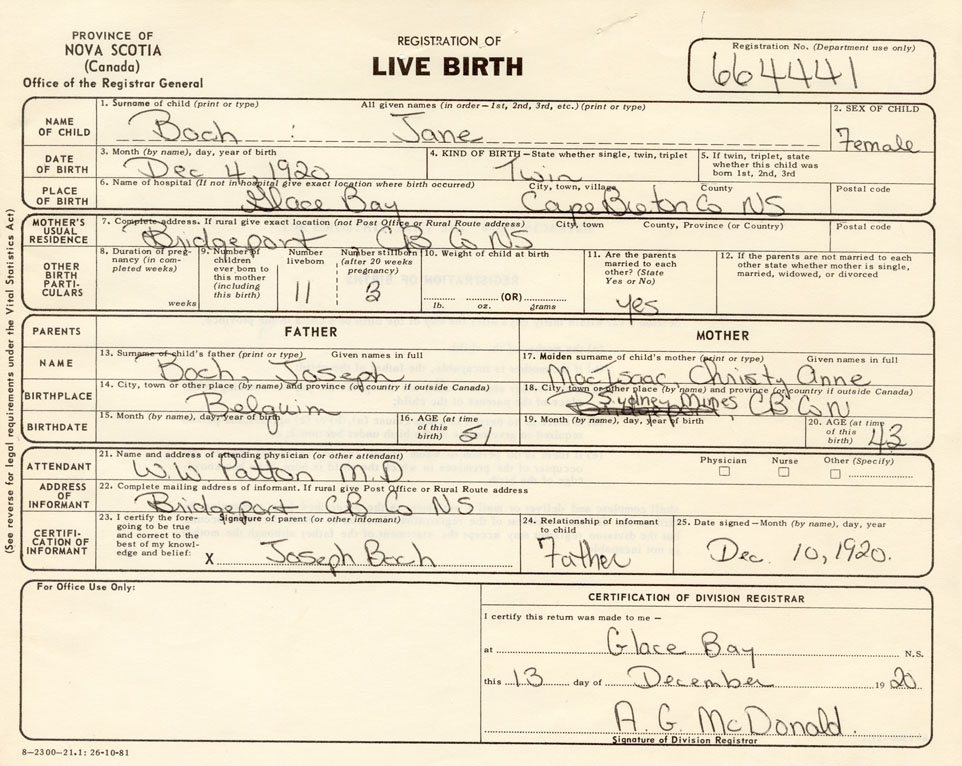 PROVINCE OF
NOVA SCOTIA
(Canada)
Office of the Registrar General
REGISTRATION OF
LIVE BIRTH
Registration No. (Department use only)
664441
NAME OF CHILD
1. Surname of child (print or type) All given names (in order—1st, 2nd, 3rd, etc.) (print or type)
Boch : Jane
2. SEX OF CHILD
Female
DATE OF BIRTH
3. Month (by name), day, year of birth
Dec 4, 1920
4. KIND OF BIRTH—State whether single, twin, triplet
Twin
5. If twin, triplet, state whether this child was born 1st, 2nd, 3rd
PLACE OF BIRTH
6. Name of hospital (If not in hospital give exact location where birth occurred) City, town, village County Postal code
Glace Bay Cape Breton Co NS
MOTHER'S USUAL RESIDENCE
7. Complete address. If rural give exact location (not Post Office or Rural Route address) City, town County, Province (or Country) Postal code
Bridgeport CB Co NS
OTHER BIRTH PARTICULARS
8. Duration of pregnancy (in completed weeks)
weeks
9. Number of children ever born to this mother (including this birth)
Number liveborn
11
Number stillborn (after 20 weeks pregnancy)
10. Weight of child at birth
(OR)
lb. oz. grams
11. Are the parents married to each other? (State Yes or No)
yes
12. If the parents are not married to each other state whether mother is single, married, widowed, or divorced
PARENTS
FATHER
MOTHER
NAME
13. Surname of child's father (print or type) Given names in full
Boch, Joseph
17. Maiden surname of child's mother (print or type) Given names in full
MacIsaac Christy Anne
BIRTHPLACE
14. City, town or other place (by name) and province (or country if outside Canada)
Belguim
18. City, town or other place (by name) and province (or country if outside Canada)
Sydney Mines CB Co N
BIRTHDATE
15. Month (by name), day, year of birth
16. AGE (at time of this birth)
51
19. Month (by name), day, year of birth
20. AGE (at time of this birth)
43
ATTENDANT
21. Name and address of attending physician (or other attendant)
W.W. Patton M.D.
Physician Nurse Other (Specify)
ADDRESS OF INFORMANT
22. Complete mailing address of informant. If rural give Post Office or Rural Route address
Bridgeport CB Co NS
CERTIFICATION OF INFORMANT
23. I certify the foregoing to be true and correct to the best of my knowledge and belief:
Signature of parent (or other informant)
X Joseph Boch
24. Relationship of informant to child
Father
25. Date signed—Month (by name), day, year
Dec. 10, 1920.
For Office Use Only:
CERTIFICATION OF DIVISION REGISTRAR
I certify this return was made to me —
at Glace Bay N.S.
this 13 day of December 19 20
A. G. McDonald
Signature of Division Registrar
8-2300-21.1: 26-10-81
(See reverse for legal requirements under the Vital Statistics Act)